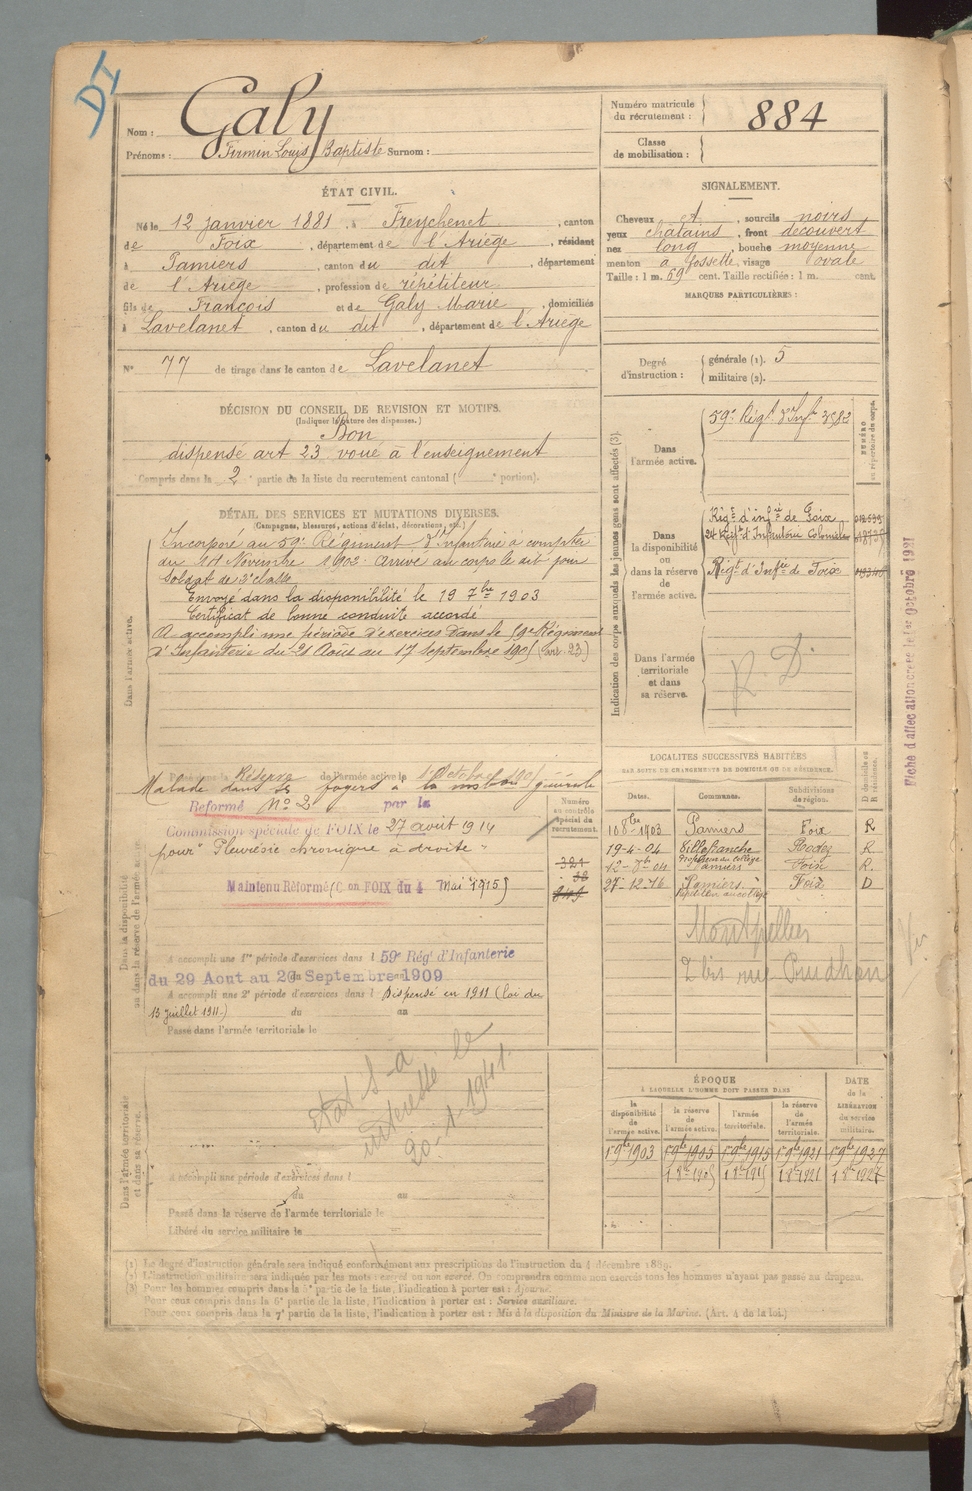 DI
Nom : Galy
Prénoms : Firmin Louis Baptiste Surnom :
Numéro matricule du recrutement : 884
Classe de mobilisation :
ÉTAT CIVIL.
Né le 12 janvier 1881, à Freychenet, canton
de Foix, département de l'Ariège, résidant
à Pamiers, canton du dit, département
de l'Ariège, profession de répétiteur
fils de François et de Galy Marie, domiciliés
à Lavelanet, canton du dit, département de l'Ariège
N° 77 de tirage dans le canton de Lavelanet
SIGNALEMENT.
Cheveux et, sourcils noirs
yeux chatains, front découvert
nez long, bouche moyenne
menton à fossette, visage ovale
Taille : 1 m. 69 cent. Taille rectifiée : 1 m. cent.
MARQUES PARTICULIÈRES :
Degré d'instruction : générale (1). 5
militaire (2).
DÉCISION DU CONSEIL DE REVISION ET MOTIFS.
(Indiquer la nature des dispenses.)
Bon
dispensé art 23 voué à l'enseignement
Compris dans la 2e partie de la liste du recrutement cantonal ( portion).
DÉTAIL DES SERVICES ET MUTATIONS DIVERSES.
(Campagnes, blessures, actions d'éclat, décorations, etc.)
Dans l'armée active.
Incorporé au 59e Régiment d'infanterie à compter
du Novembre 1902. Arrivé au corps le dit jour
soldat de 2e classe
Envoyé dans la disponibilité le 19 7bre 1903
Certificat de bonne conduite accordé
A accompli une période d'exercices dans le 59e Régiment
d'Infanterie du 21 Août au 17 septembre 1905 (art. 23)
Indication des corps auxquels les jeunes gens sont affectés (3).
NUMÉRO au répertoire du corps.
Dans l'armée active.
59e Régt d'Inf. 3582
Dans la disponibilité ou dans la réserve de l'armée active.
Rigt d'infie de Foix
24 Régt d'Infanterie Coloniale
Rigt d'Infie de Foix
Dans l'armée territoriale et dans sa réserve.
R. D.
Fiche d'affec allongée le 1er Octobre 1921
Dans la disponibilité ou dans la réserve de l'armée active.
Passé dans la Réserve de l'armée active le 1 Octobre 1905
Malade dans ses foyers à la mobon générale
Réformé N° 2 par la
Commission spéciale de FOIX le 27 août 1914
pour "Pleurésie chronique à droite"
Maintenu Réformé (Con FOIX du 4 Mai 1915)
Numéro au contrôle spécial du recrutement.
A accompli une 1re période d'exercices dans l 59e Rég' d'Infanterie
du 29 Aout au 20 Septembre 1909
A accompli une 2e période d'exercices dans l Dispensé en 1911 (loi du
13 juillet 1911) du au
Passé dans l'armée territoriale le
LOCALITÉS SUCCESSIVES HABITÉES
PAR SUITE DE CHANGEMENTS DE DOMICILE OU DE RÉSIDENCE.
Dates. Communes. Subdivisions de région. D domicile ou R résidence.
10 8bre 1903 Pamiers Foix R
19-4-04 Villefranche Rodez R.
12-8bre 04 Pamiers Foix R.
27-12-16 Pamiers Foix D
Montpellier
2 bis rue Prudhon
Dans l'armée territoriale et dans sa réserve.
état S-a
intéressé le
20-1-1941.
A accompli une période d'exercices dans l
du au
Passé dans la réserve de l'armée territoriale le
Libéré du service militaire le
ÉPOQUE
À LAQUELLE L'HOMME DOIT PASSER DANS
DATE de la LIBÉRATION du service militaire.
la disponibilité de l'armée active. la réserve de l'armée active. l'armée territoriale. la réserve de l'armée territoriale.
1 9bre 1903 1 9bre 1905 1 9bre 1915 1 9bre 1921 1 9bre 1927
1 8bre 1905 1 8bre 1915 1 8bre 1921 1 8bre 1927
(1) Le degré d'instruction générale sera indiqué conformément aux prescriptions de l'instruction du 4 décembre 1889.
(2) L'instruction militaire sera indiquée par les mots : exercé ou non exercé. On comprendra comme non exercés tous les hommes n'ayant pas passé au drapeau.
(3) Pour les hommes compris dans la 5e partie de la liste, l'indication à porter est : Ajourné.
Pour ceux compris dans la 6e partie de la liste, l'indication à porter est : Service auxiliaire.
Pour ceux compris dans la 7e partie de la liste, l'indication à porter est : Mis à la disposition du Ministre de la Marine. (Art. 4 de la loi.)